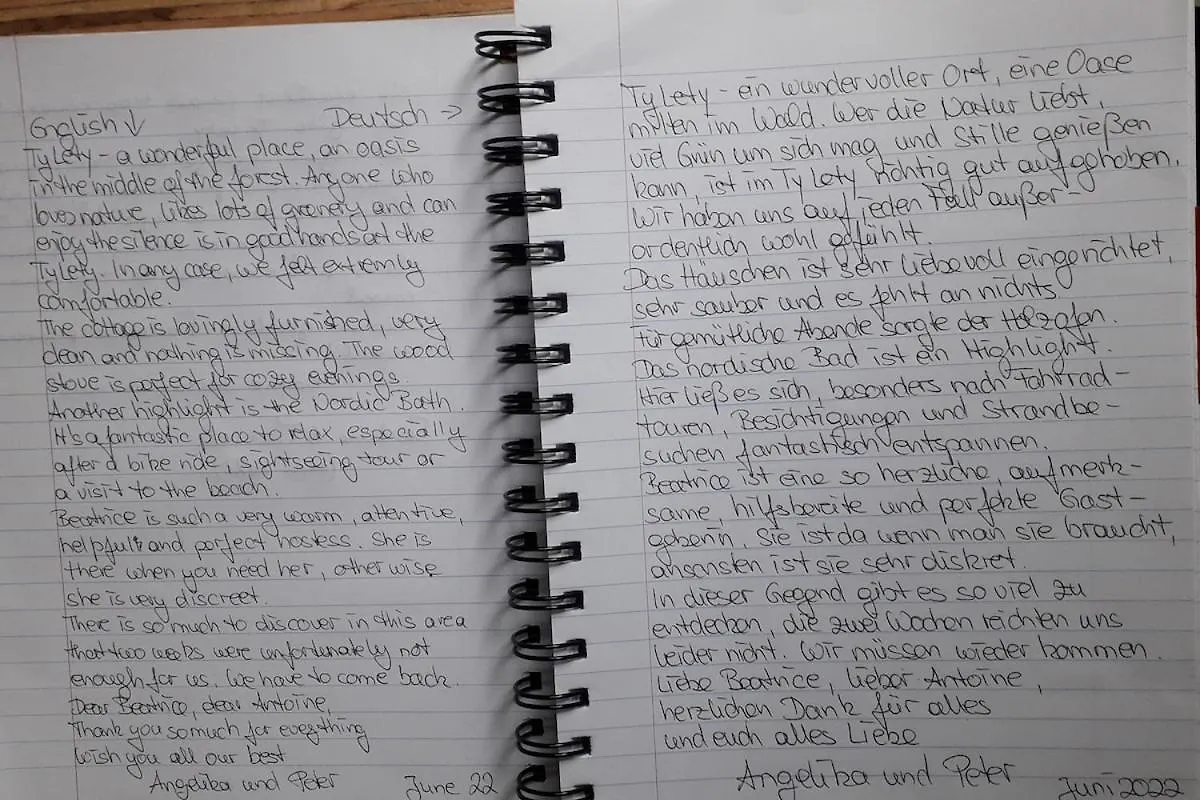 English ↓ Deutsch →
TyLety - a wonderful place, an oasis
in the middle of the forst. Anyone who
loves nature, likes lots of greenery and can
enjoy the silence is in good hands at the
TyLety. In any case, we felt extremly
comfortable.
The cottage is lovingly furnished, very
clean and nothing is missing. The wood
stove is perfect for cozy evenings.
Another highlight is the Nordic Bath.
It's a fantastic place to relax, especially
after a bike ride, sightseeing tour or
a visit to the beach.
Beatrice is such a very warm, attentive,
helpfull and perfect hostess. She is
there when you need her, otherwise
she is very discreet.
There is so much to discover in this area
that two weeks were unfortunately not
enough for us. We have to come back.
Dear Beatrice, dear Antoine,
Thank you so much for everything
wish you all our best
Angelika und Peter June 22
TyLety - ein wundervoller Ort, eine Oase
mitten im Wald. Wer die Natur liebt,
viel Grün um sich mag und Stille genießen
kann, ist im TyLety richtig gut aufgehoben.
Wir haben uns auf jeden Fall außer-
ordentlich wohl gefühlt.
Das Häuschen ist sehr liebevoll eingerichtet,
sehr sauber und es fehlt an nichts
Für gemütliche Abende sorgte der Holzofen.
Das nordische Bad ist ein Highlight.
Hier ließ es sich, besonders nach Fahrrad-
touren, Besichtigungen und Strandbe-
suchen fantastisch entspannen.
Beatrice ist eine so herzliche, aufmerk-
same, hilfsbereite und perfekte Gast-
geberin. Sie ist da wenn man sie braucht,
ansonsten ist sie sehr diskret.
In dieser Gegend gibt es so viel zu
entdecken, die zwei Wochen reichten uns
leider nicht. Wir müssen wieder kommen.
Liebe Beatrice, lieber Antoine,
herzlichen Dank für alles
und euch alles Liebe
Angelika und Peter Juni 2022